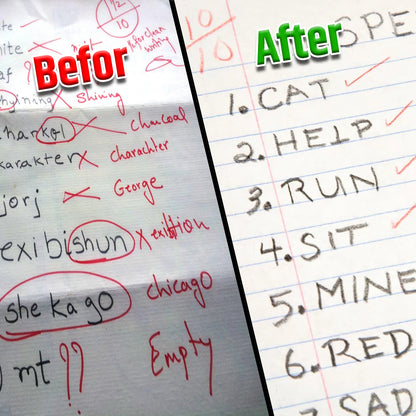 Befor
12
10
ite
nite
af ?
Shining
charkol Charcoal
karakter charachter
jorj George
exibishun exibition
she ka go chicago
mt ?? Empty
After
10
10
SPE
1. CAT
2. HELP
3. RUN
4. SIT
5. MINE
6. RED
SAD